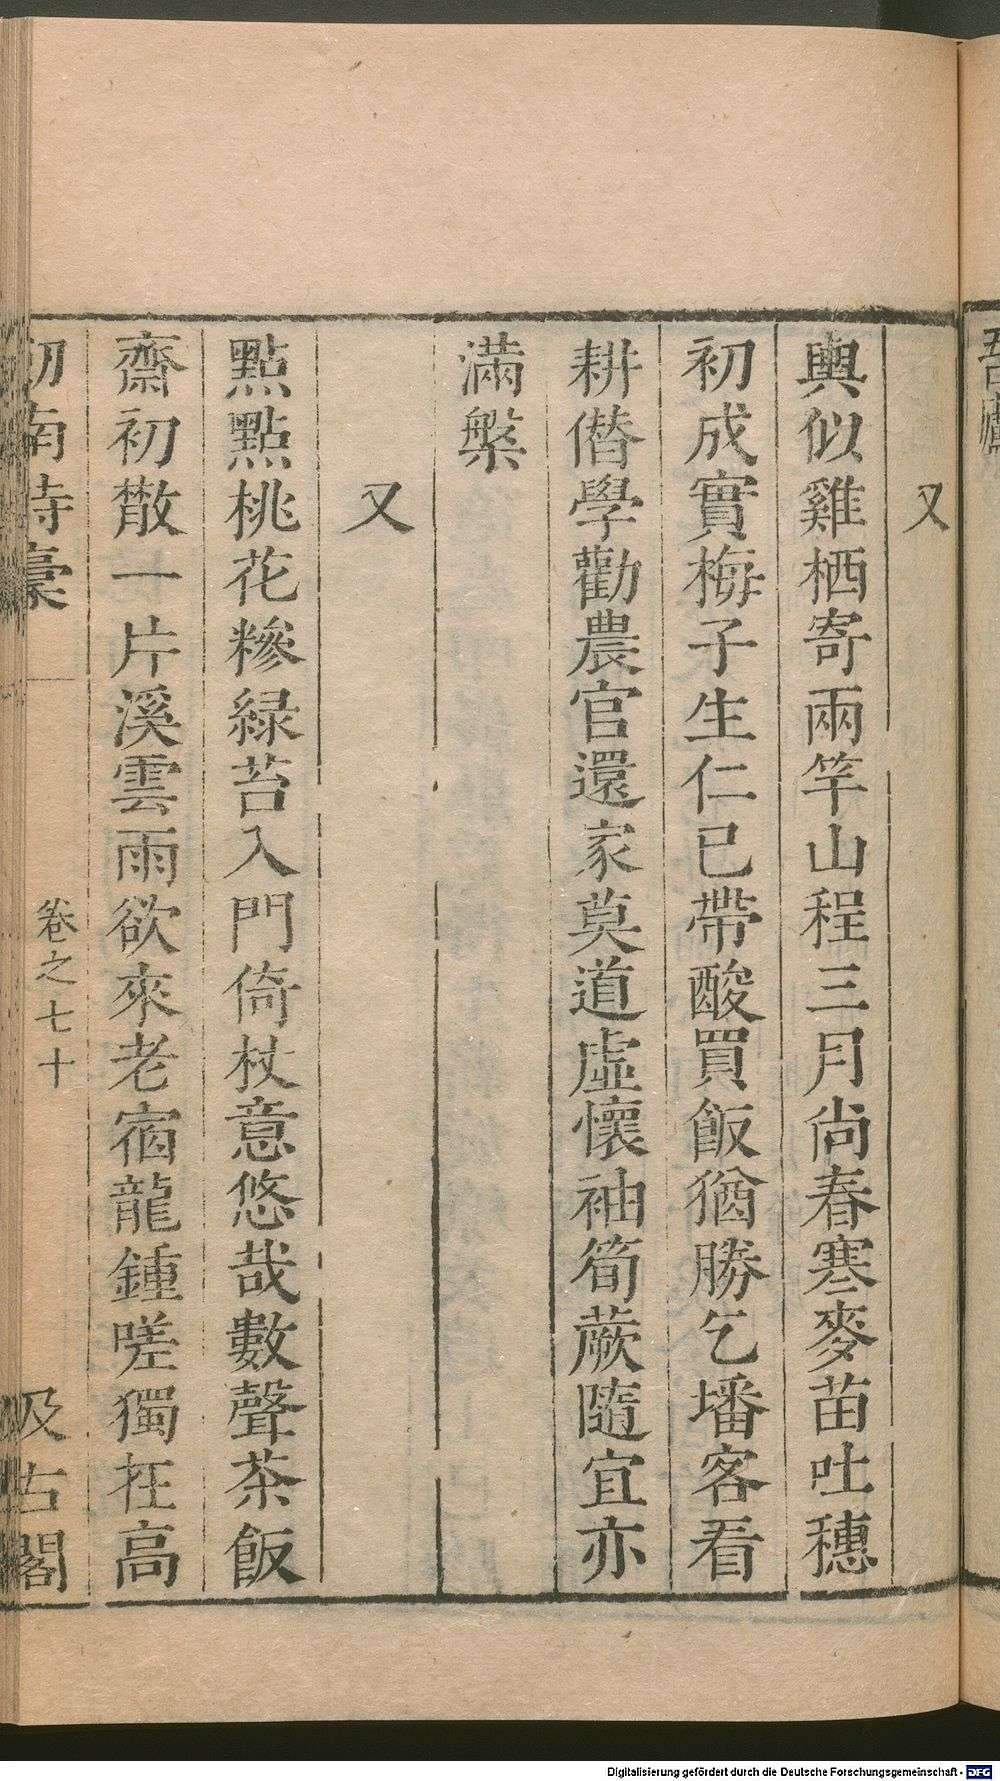 又
輿似雞栖寄兩竿山程三月尚春寒麥苗吐穗
初成實梅子生仁已帶酸買飯猶勝乞墦客看
耕僭學勸農官還家莫道虛懷袖筍蕨隨宜亦
滿槃
又
點點桃花糝綠苔入門倚杖意悠哉數聲茶飯
齋初散一片溪雲雨欲來老宿龍鍾嗟獨在高
劒南詩稾
卷之七十
汲古閣
Digitalisierung gefördert durch die Deutsche Forschungsgemeinschaft - DFG